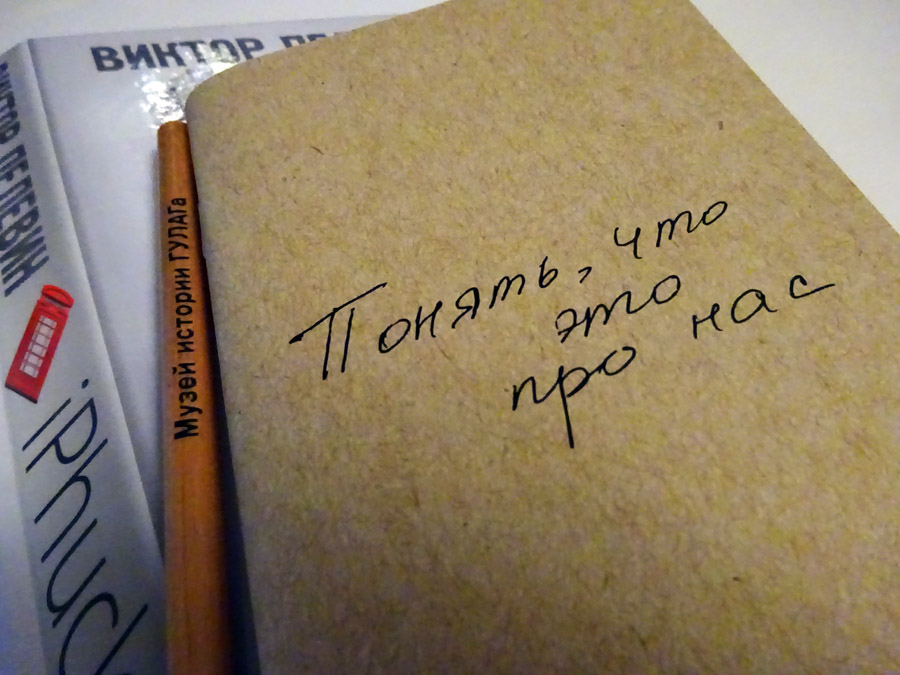 ВИКТОР
ВИКТОР ПЕЛЕВИН
iPhuck
Музей истории ГУЛАГа
Понять, что
это
про нас